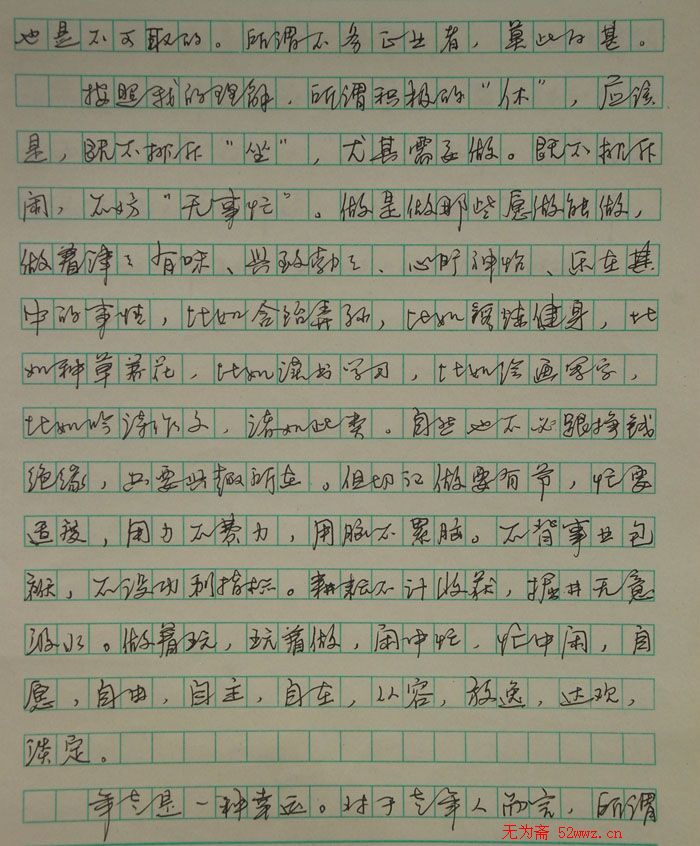 也是不可取的。所谓不务正业者，莫此为甚。
按照我的理解，所谓积极的“休”，应该
是，既不排斥“坐”，尤其需要做。既不排斥
闲，不妨“无事忙”。做是做那些愿做能做，
做着津々有味、兴致勃々、心旷神怡、乐在其
中的事情，比如含饴弄孙，比如锻炼健身，比
如种草养花，比如读书学习，比如绘画写字，
比如吟诗作文，诸如此类。自然也不必跟挣钱
绝缘，只要兴趣所在。但切记做要有节，忙要
适度，用力不费力，用脑不累脑。不背事业包
袱，不设功利指标。耕耘不计收获，掘井无意
汲水。做着玩，玩着做，闲中忙，忙中闲，自
愿，自由，自主，自在，从容，放逸，达观，
淡定。
年老是一种幸运。对于老年人而言，所谓
无为斋 52wwz.cn